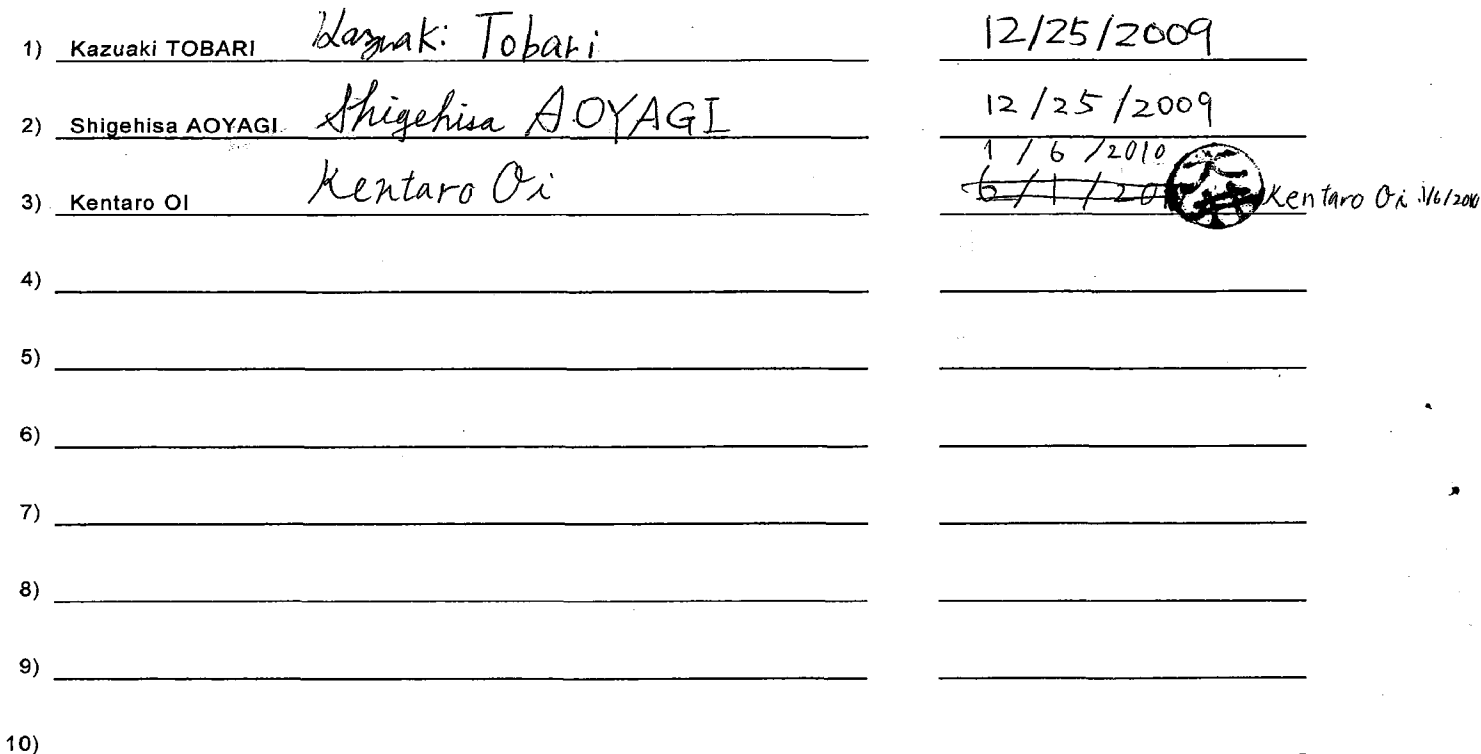 1) Kazuaki TOBARI Kazuaki Tobari 12/25/2009
2) Shigehisa AOYAGI Shigehisa AOYAGI 12/25/2009
1/6/2010
3) Kentaro OI Kentaro Oi 6/1/20 Kentaro Oi 1/6/2010
4)
5)
6)
7)
8)
9)
10)